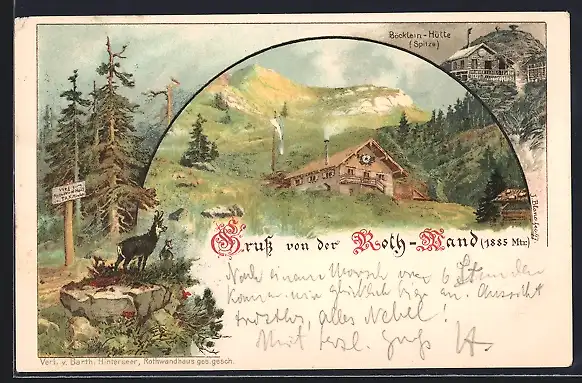 Böcklein-Hütte
(Spitze)
Gruß von der Roth-Wand (1885 Mtr.)
Nach einem Marsch von 6 Stunden
kamen wir glücklich hier an. Aussicht
trostlos, alles Nebel!
Mit herzl. Gruß
Verl. v. Barth. Hinterseer, Rothwandhaus ges. gesch.